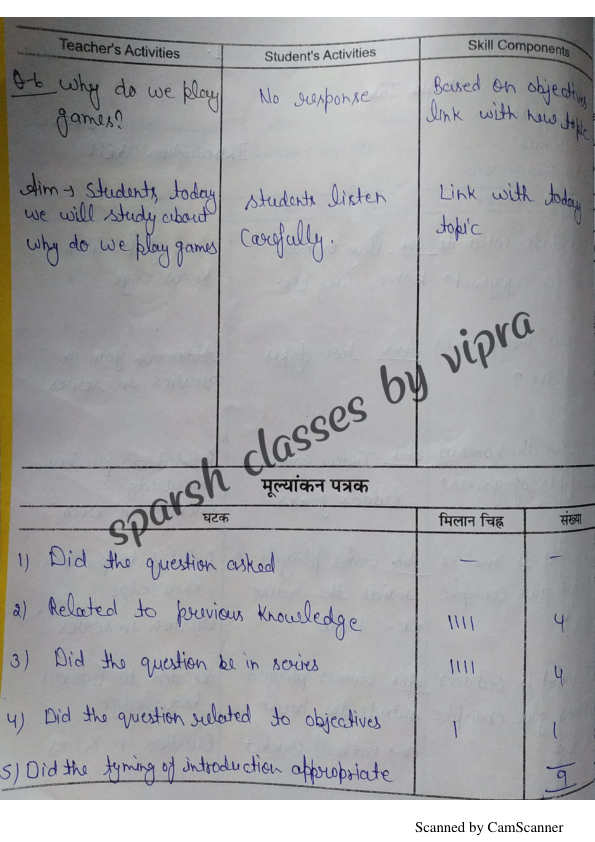 Teacher's Activities Student's Activities Skill Components
Q-6 Why do we play No response Based on objectives
games? link with new topic
Aim → Students, today Students listen Link with today
we will study about Carefully. topic
why do we play games
sparsh classes by vipra
मूल्यांकन पत्रक
घटक मिलान चिह्न संख्या
1) Did the question asked – –
2) Related to previous Knowledge |||| 4
3) Did the question be in series |||| 4
4) Did the question related to objectives | 1
5) Did the tyming of introduction appropriate 9
Scanned by CamScanner